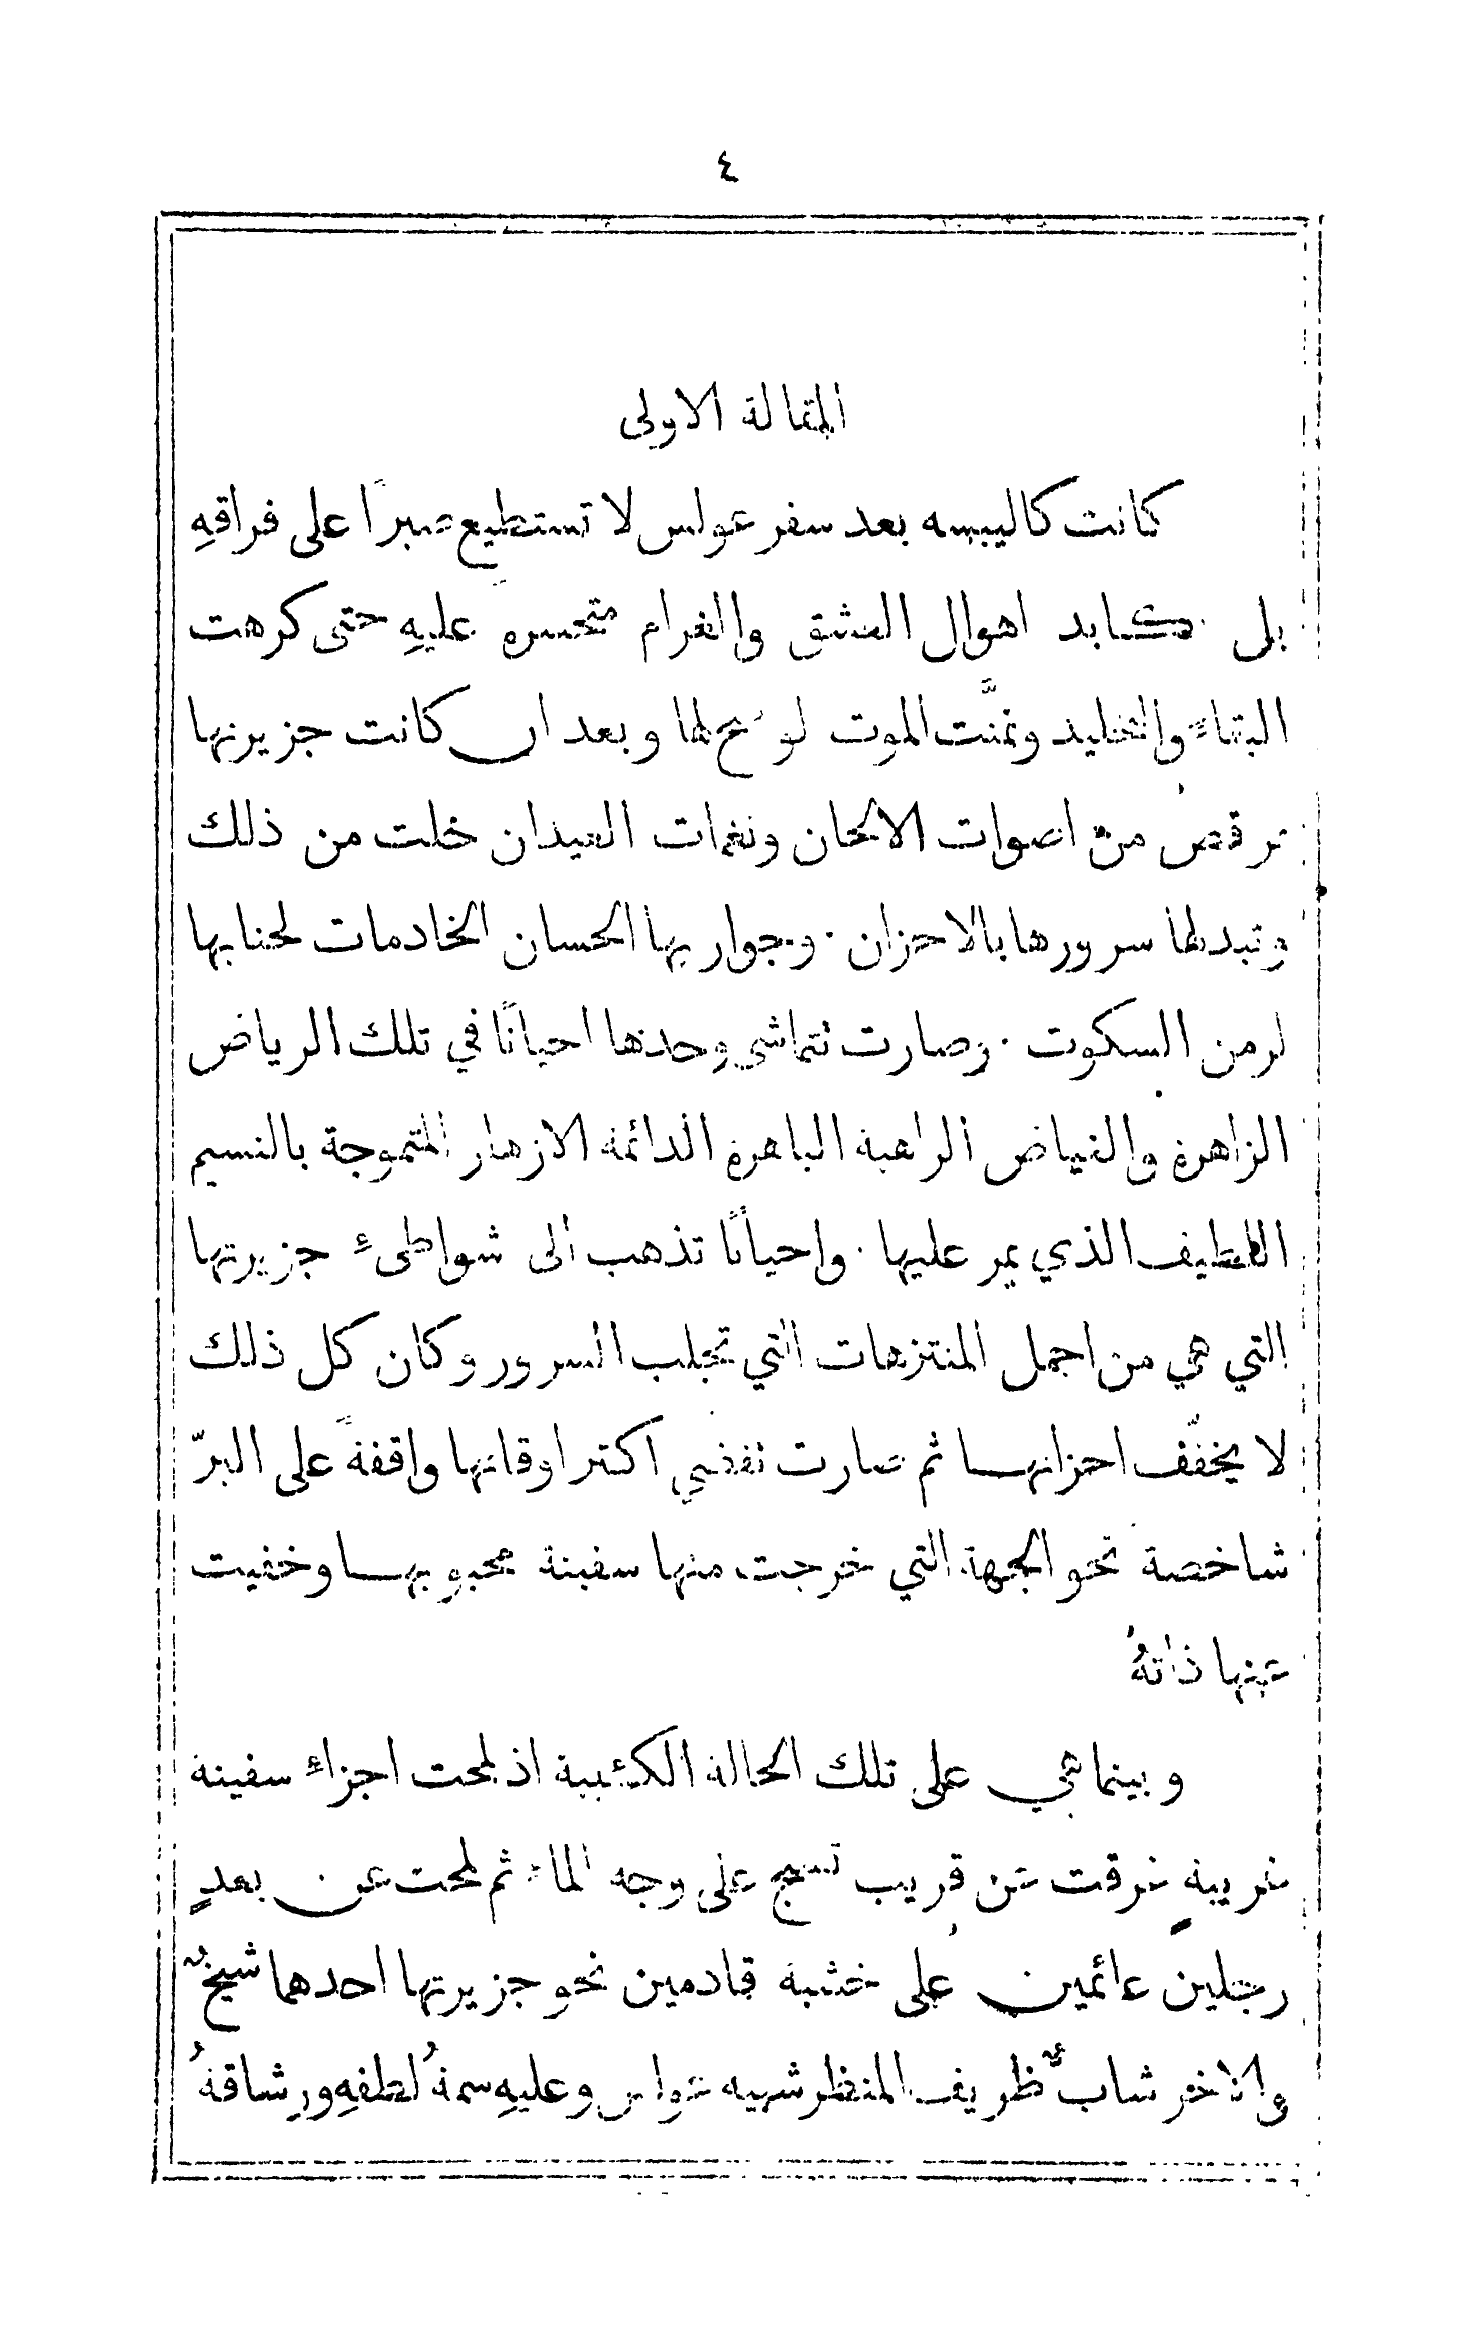 ٤
المقالة الاولى
كانت كاليبسه بعد سفر عولس لا تستطيع صبرًا على فراقهِ
بل تكابد اهوال العشق والغرام متحسرةً عليهِ حتى كرهت
البقاء والتخليد وتمنَّت الموت لو يصح لها وبعد ان كانت جزيرتها
ترقص من اصوات الالحان ونغمات العيدان خلت من ذلك
وتبدلها سرورها بالاحزان . وجواريها الحسان الخادمات لجنابها
لزمن السكوت . وصارت تتماشى وحدها احيانًا في تلك الرياض
الزاهرة والغياض الراهبة الباهرة الدائمة الازهار المتموجة بالنسيم
اللطيف الذي يمر عليها . واحيانًا تذهب الى شواطئ جزيرتها
التي هي من اجمل المنتزهات التي تجلب السرور وكان كل ذلك
لا يخفّف احزانهـا ثم صارت تقضي اكثر اوقاتها واقفةً على البرّ
شاخصة نحو الجهة التي خرجت منها سفينة محبوبهـا وخفيت
عينها ذاتهُ
وبينما هي على تلك الحالة الكئيبة اذ لمحت اجزاء سفينة
غريبةٍ غرقت عن قريب تسبح على وجه الماء ثم لمحت عن بعدٍ
رجلين عائمين على خشبة قادمين نحو جزيرتها احدهما شيخٌ
والاخر شابٌ ظريف المنظر شبيه عولس وعليهِ سمةُ لطفهِ ورشاقةُ